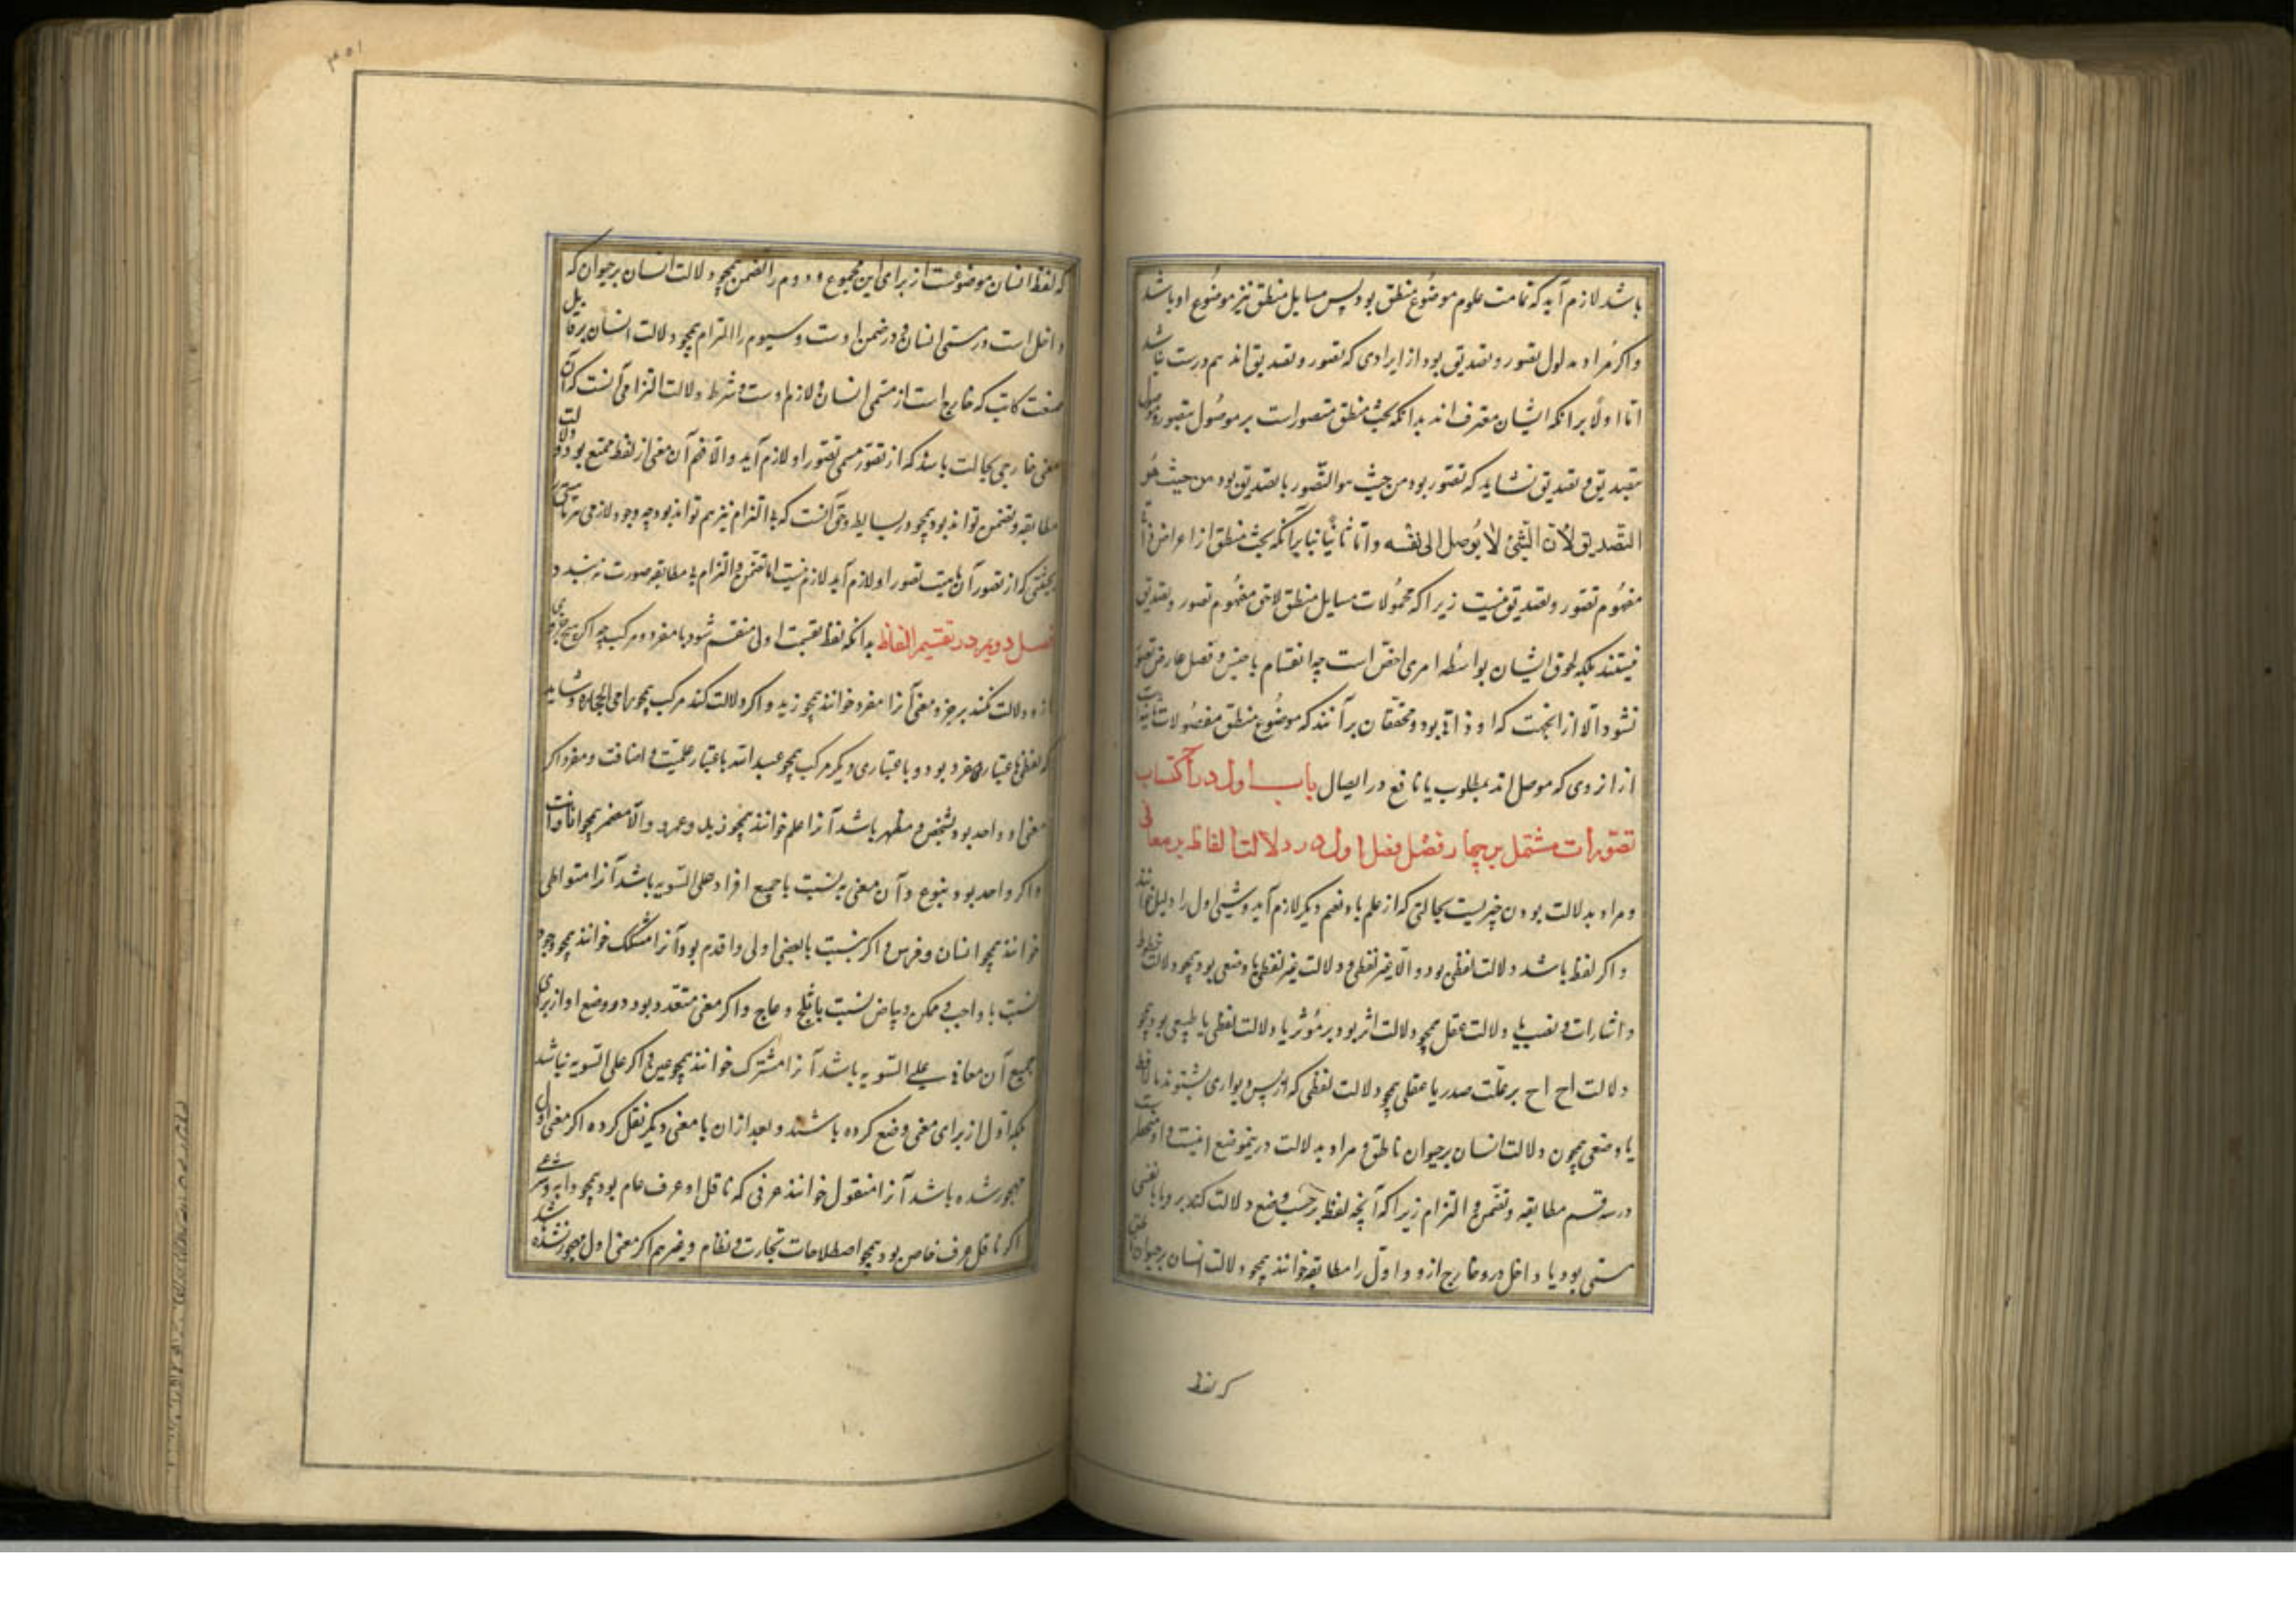 باشد لازم آید که تمامت علوم موضوع منطق بود پس مسایل منطق نیز موضوع او باشد
و اگر مراد مدلول تصور و تصدیق بود از ایرادی که تصور و تصدیق اند هم درست نباشد
اما اولا برانکه ایشان معترف اند بدانکه بحث منطق مقصور است بر موصول بتصور و موصل
بتصدیق و تصدیق نشاید که تصور بود من حیث هو التصور یا تصدیق بود من حیث هو
التصدیق لان الشئ لا یوصل الی نفسه و اما ثانیا بنابرآنکه بحث منطق از اعراض ذاتی
مفهوم تصور و تصدیق نیست زیرا که محمولات مسایل منطق لاحق مفهوم تصور و تصدیق
نیستند بلکه لحوق ایشان بواسطه امری اخص است چه انقسام با جنس و فصل عارض تصور
نشود الا از انجهت که او ذاتی بود و محققان برآنند که موضوع منطق معقولات ثانیه است
از ان روی که موصل اند بمطلوب یا نافع در ایصال باب اول در اکتساب
تصورات مشتمل بر چهار فصل فصل اول در دلالت الفاظ بر معانی
و مراد بدلالت بودن چیزیست بحالتی که از علم باو فهم دیگر لازم آید و شیئ اول را دلیل خوانند
و اگر لفظ باشد دلالت لفظی بود و الا غیر لفظی و دلالت غیر لفظی یا وضعی بود همچو دلالت خطوط
و اشارات و نصب یا دلالت عقل همچو دلالت اثر بود بر مؤثر یا دلالت لفظی یا طبیعی بود همچو
دلالت اح اح بر علت صدر یا عقلی همچو دلالت لفظی که از پس دیواری بشنوند بر لافظ
یا وضعی همچون دلالت انسان بر حیوان ناطق و مراد بدلالت درینموضع اینست و او منحصر است
در سه قسم مطابقه و تضمن و التزام زیرا که آنچه لفظ بر حسب وضع دلالت کند برو یا نفس
مسمی بود یا داخل درو یا خارج ازو و اول را مطابقه خوانند همچو دلالت انسان بر حیوان ناطق
که لفظ
که لفظ انسان موضوعست از برای این مجموع و دوم را تضمن همچو دلالت انسان بر حیوان که
داخل است در مسمی انسان و در ضمن اوست و سیوم را التزام همچو دلالت انسان بر قابل
صنعت کتابت که خارج است از مسمی انسان و لازم اوست و شرط دلالت التزامی آنست که آن
معنی خارجی بحالت باشد که از تصور مسمی تصور او لازم آید و الا فهم آن معنی از لفظ ممتنع بود و دلالت
مطابقه و تضمن تواند بود همچو در بسایط و حق آنست که بی التزام نیز هم تواند بود چه وجود لازمی هر ماهیتی را
بحیثیتی که از تصور آن ماهیت تصور او لازم آید لازم نیست اما تضمن و التزام بی مطابقه صورت نه بندد
فصل دویم در تقسیم الفاظ بدانکه لفظ بقسمت اولی منقسم شود با مفرد و مرکب چه اگر هیچ جزوی
ازو دلالت نکند بر جزو معنی آنرا مفرد خوانند همچو زید و اگر دلالت کند مرکب همچو رامی الحجاره و شاید
که لفظی باعتباری مفرد بود و باعتباری دیگر مرکب همچو عبد الله باعتبار علمیت و اضافت و مفرد اگر
معنی او واحد بود بشخص و مظهر باشد آنرا علم خوانند همچو زید و عمرو و الا مضمر همچو انا و انت
و اگر واحد بود بنوع و آن معنی به نسبت با جمیع افراد علی السویه باشد آنرا متواطی
خوانند همچو انسان و فرس و اگر بنسبت با بعضی اولی و اقدم بود آنرا مشکک خوانند همچو وجود
نسبت با واجب و ممکن و بیاض نسبت با ثلج و عاج و اگر معنی متعدد بود و وضع او از برای
جمیع آن معانی علی السویه باشد آنرا مشترک خوانند همچو عین و اگر علی السویه نباشد
بلکه اول از برای معنی وضع کرده باشند و بعد ازان با معنی دیگر نقل کرده اگر معنی اول
مهجور شده باشد آنرا منقول خوانند عرفی که ناقل او عرف عام بود همچو دابه و شرعی
اگر ناقل عرف خاص بود همچو اصطلاحات نحات و نظام و غیر هم اگر معنی اول مهجور نشده باشد